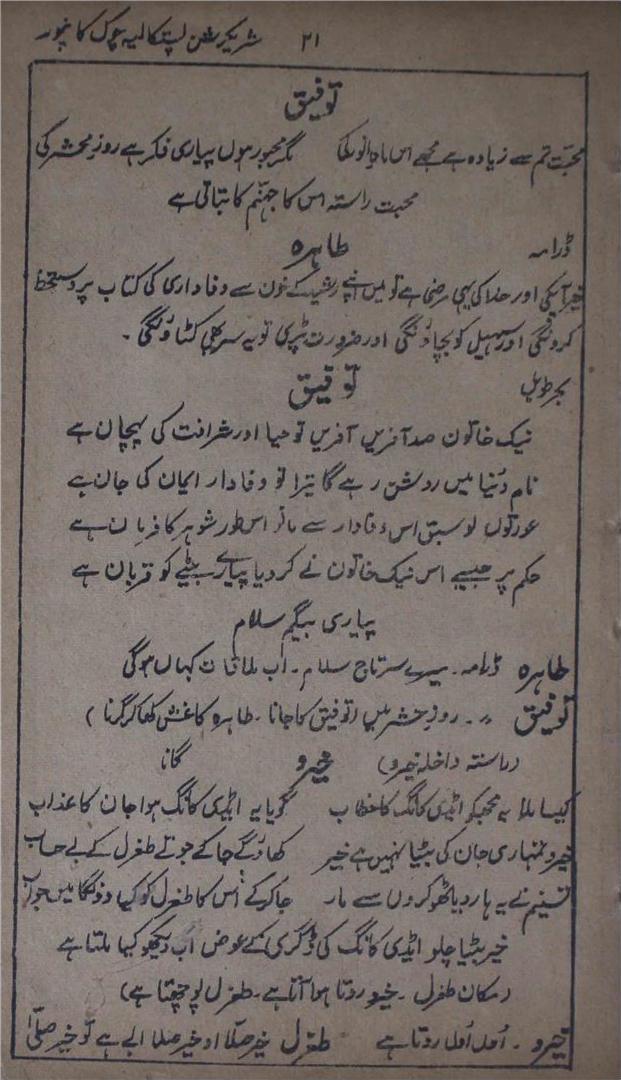 ۲۱ شریکرشن پستکالیہ چوک کانپور
توفیق
محبت تم سے زیادہ ہے مجھے اس ماہ انور کی مگر مجبور ہوں پیاری فکر ہے روز محشر کی
محبت راستہ اس کا جہنم کا بتاتی ہے
ڈرامہ طاہرہ
خیر آپکی اور خدا کی یہی مرضی ہے تو میں اپنے رشید کے خون سے وفاداری کی کتاب پر دستخط
کرونگی اور سہیل کو بچاؤنگی اور ضرورت پڑی تو یہ سر بھی کٹاؤنگی ۔
بحر طویل توفیق
نیک خاتون صد آفریں آفریں تو حیا اور شرافت کی پہچان ہے
نام دُنیا میں روشن رہے گا تیرا تو وفادار ایمان کی جان ہے
عورتوں لو سبق اس وفادار سے مانو اس طور شوہر کا فرمان ہے
حکم پر جیسے اس نیک خاتون نے کر دیا پیارے بیٹے کو قربان ہے
پیاری بیگم سلام
طاہرہ ڈرامہ ۔ میرے سرتاج سلام ۔ اب ملاقات کہاں ہوگی
توفیق 〃 ۔ روز حشر میں (توفیق کا جانا ۔ طاہرہ کا غش کھا کر گرنا)
(راستہ داخلہ خیرو) خیرو گانا
کیسا ملا یہ مجھکو ایڈی کانگ کا خطاب گویا یہ ایڈی کانگ ہوا جان کا عذاب
خیرو تمہاری جان کی بیٹا نہیں ہے خیر کھاؤگے جا کے جوتے طغرل کے بے حساب
تسنیم نے یہ ہار دیا ٹھوکروں سے مار جا کر کے اُس کا طغرل کو کیا دونگا میں جواب
خیر بیٹا چلو ایڈی کانگ کی ڈگری کے عوض اب دیکھو کیا ملتا ہے
(مکان طغرل ۔ خیرو روتا ہوا آتا ہے ۔ طغرل پوچھتا ہے)
خیرو ۔ اُوں اُوں روتا ہے طغرل خیر صلّا او خیر صلا ابے ہے تو خیر صلّا